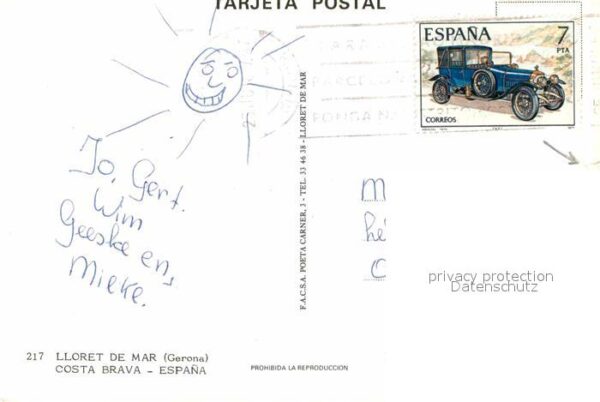 TARJETA POSTAL
ESPAÑA 7
PTA
CORREOS
Jo, Gert.
Wim
Geeske en,
Mieke.
F.A.C.S.A. POETA CARNER, 3 - TEL. 33 46 38 - LLORET DE MAR
M
hé
privacy protection
Datenschutz
217 LLORET DE MAR (Gerona)
COSTA BRAVA - ESPAÑA
PROHIBIDA LA REPRODUCCION